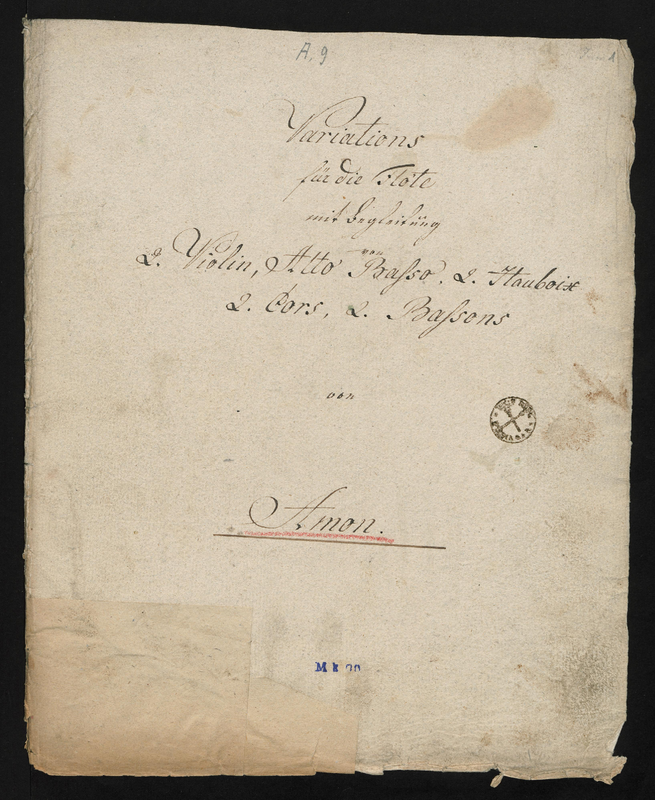 A. 9
Variations
für die Flöte
mit Begleitung
von
2. Violin, Alto Basso, 2. Hauboix
2. Cors, 2. Bassons
von
Amon.